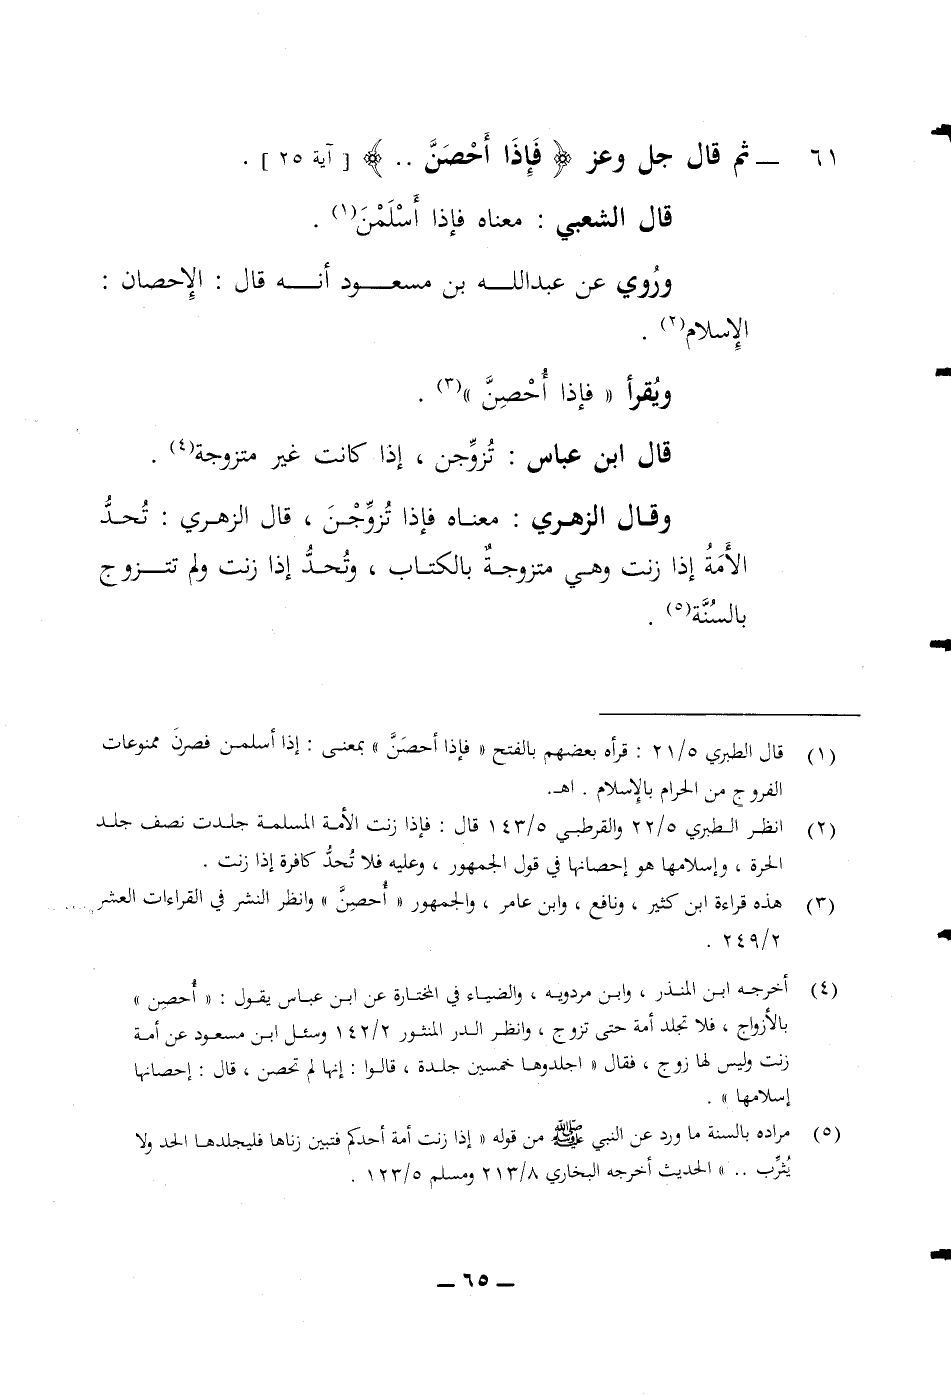 ٦١ ــ ثم قال جل وعز ﴿ فَإِذَا أَحْصَنَّ .. ﴾ [ آية ٢٥ ] .
قال الشعبي : معناه فإذا أَسْلَمْنَ(١) .
ورُوي عن عبدالله بن مسعود أنه قال : الإِحصان :
الإِسلام(٢) .
ويُقرأ « فإذا أُحْصِنَّ »(٣) .
قال ابن عباس : تُزوِّجن ، إذا كانت غير متزوجة(٤) .
وقال الزهري : معناه فإذا تُزوِّجْنَ ، قال الزهري : تُحدُّ
الأَمَةُ إذا زنت وهي متزوجةٌ بالكتاب ، وتُحدُّ إذا زنت ولم تتزوج
بالسُنَّة(٥) .
(١) قال الطبري ٢١/٥ : قرأه بعضهم بالفتح « فإذا أحصَنَّ » بمعنى : إذا أسلمن فصرنَ ممنوعات
الفروج من الحرام بالإِسلام . اهـ.
(٢) انظر الطبري ٢٢/٥ والقرطبي ١٤٣/٥ قال : فإذا زنت الأمة المسلمة جلدت نصف جلد
الحرة ، وإسلامها هو إحصانها في قول الجمهور ، وعليه فلا تُحدُّ كافرة إذا زنت .
(٣) هذه قراءة ابن كثير ، ونافع ، وابن عامر ، والجمهور « أُحصِنَّ » وانظر النشر في القراءات العشر
٢٤٩/٢ .
(٤) أخرجه ابن المنذر ، وابن مردويه ، والضياء في المختارة عن ابن عباس يقول : « أُحصِن »
بالأزواج ، فلا تجلد أمة حتى تزوج ، وانظر الدر المنثور ١٤٢/٢ وسئل ابن مسعود عن أمة
زنت وليس لها زوج ، فقال « اجلدوها خمسين جلدة ، قالوا : إنها لم تحصن ، قال : إحصانها
إسلامها » .
(٥) مراده بالسنة ما ورد عن النبي ﷺ من قوله « إذا زنت أمة أحدكم فتبين زناها فليجلدها الحد ولا
يُثرِّب .. » الحديث أخرجه البخاري ٢١٣/٨ ومسلم ١٢٣/٥ .
ــ ٦٥ ــ